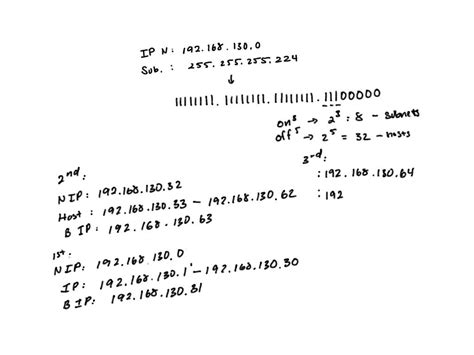 IP N: 192.168.130.0
Sub. : 255.255.255.224
↓
11111111. 11111111. 11111111. 11100000
on³ → 2³ : 8 - subnets
off⁵ → 2⁵ = 32 - hosts
2nd:
NIP: 192.168.130.32
Host : 192.168.130.33 - 192.168.130.62
B IP: 192.168.130.63
3rd:
: 192.168.130.64
: 192
1st.
NIP: 192.168.130.0
IP: 192.168.130.1 - 192.168.130.30
BIP: 192.168.130.31